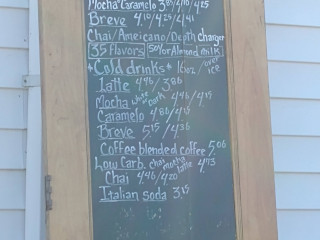 Mocha Caramelo 3.85/4.10/4.25
Breve 4.10/4.25/4.41
Chai/Americano/Depth charger
35 flavors Soy or Almond milk
*Cold drinks* 16oz/over ice
Latte 4.96/3.86
Mocha white or dark 4.46/4.15
Caramelo 4.46/4.15
Breve 5.15/4.36
Coffee blended coffee 5.06
Low Carb. chai mocha latte 4.73
Chai 4.96/4.20
Italian soda 3.15